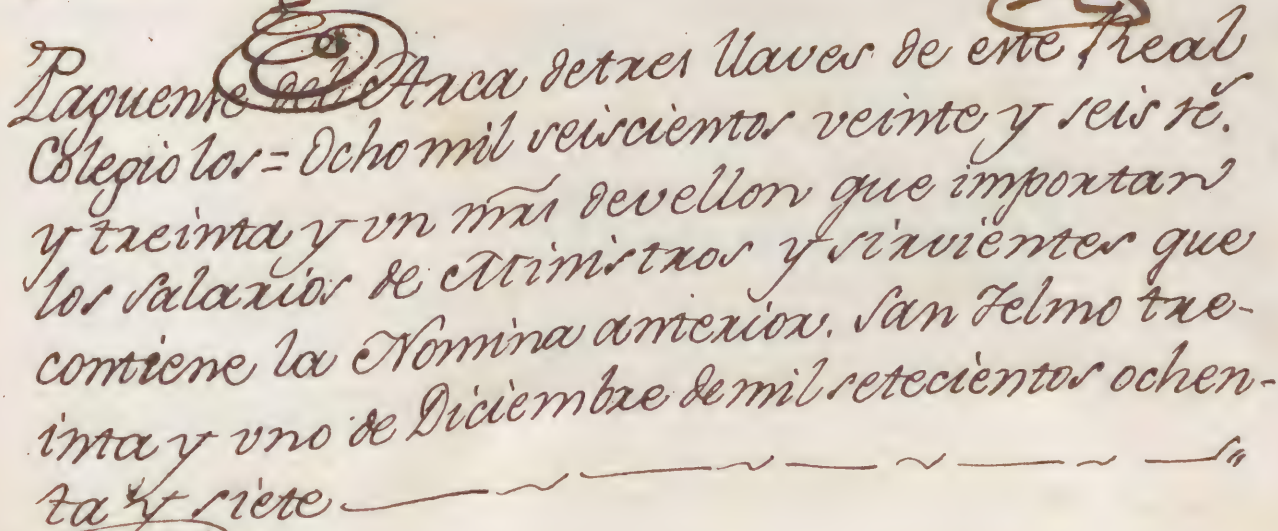 Paguense del Arca detres llaves de este Real
Colegio los = Ocho mil seiscientos veinte y seis rs.
y treinta y un mrs devellon que importan
los salarios de Ministros y sirvientes que
contiene la Nomina anterior. San Telmo tre-
inta y uno de Diciembre demil setecientos ochen-
ta y siete